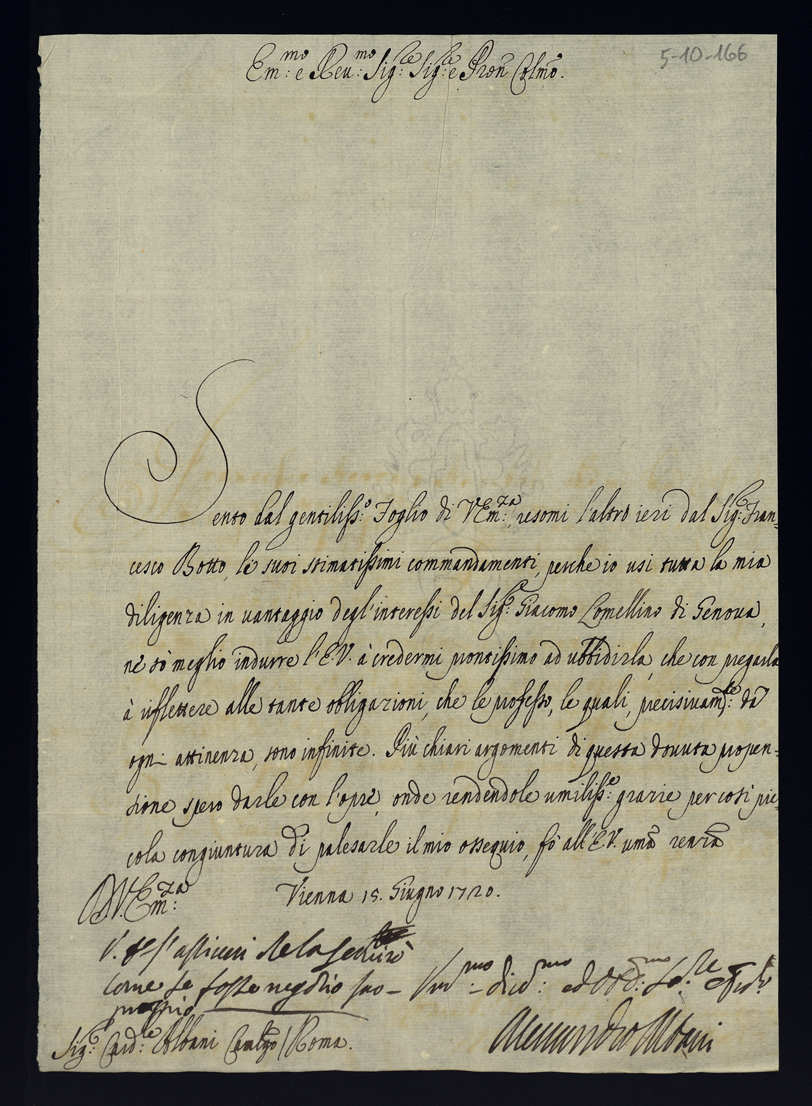 5-10-166
Em:mo e Reu:mo Sig:re Sig:re e Pron Colmo.
Sento dal gentiliss:o Foglio di V Em:za, resomi l'altro ieri dal Sig: Fran=
cesco Botto, le suoi stimatissimi commandamenti, perche io usi tutta la mia
diligenza in vantaggio degl'interessi del Sig:r Giacomo Lomellino di Genova,
nè sò meglio indurre l'E.V. à credermi prontissimo ad ubbidirla, che con pregarla
à riflettere alle tante obligazioni, che le professo, le quali, precisivam:te da
ogni attinenza, sono infinite. Più chiari argomenti di questa dovuta propen=
sione spero darle con l'opre, onde rendendole umiliss:e grazie per così pic=
cola congiuntura di palesarle il mio ossequio, fò all'E.V. uma renza
D.V. Em:za Vienna 15. Giugno 1720.
V. s'assicuri
come se fosse negotio suo
proprio
Sig:r Card:le Albani Camlgo / Roma.
Alessandro Albani